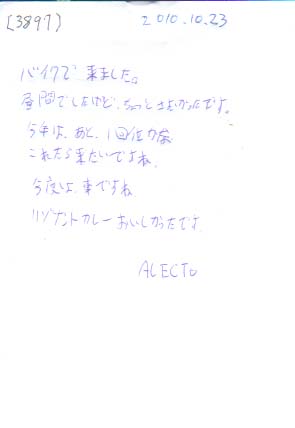 [3897]
2010.10.23
バイクで 来ました。
昼間でしたけど、ちょっと さむかったです。
今年は、あと、1回位
これたら 来たいですね。
今度は、車ですね
リゾナントカレー おいしかったです。
ALECTO